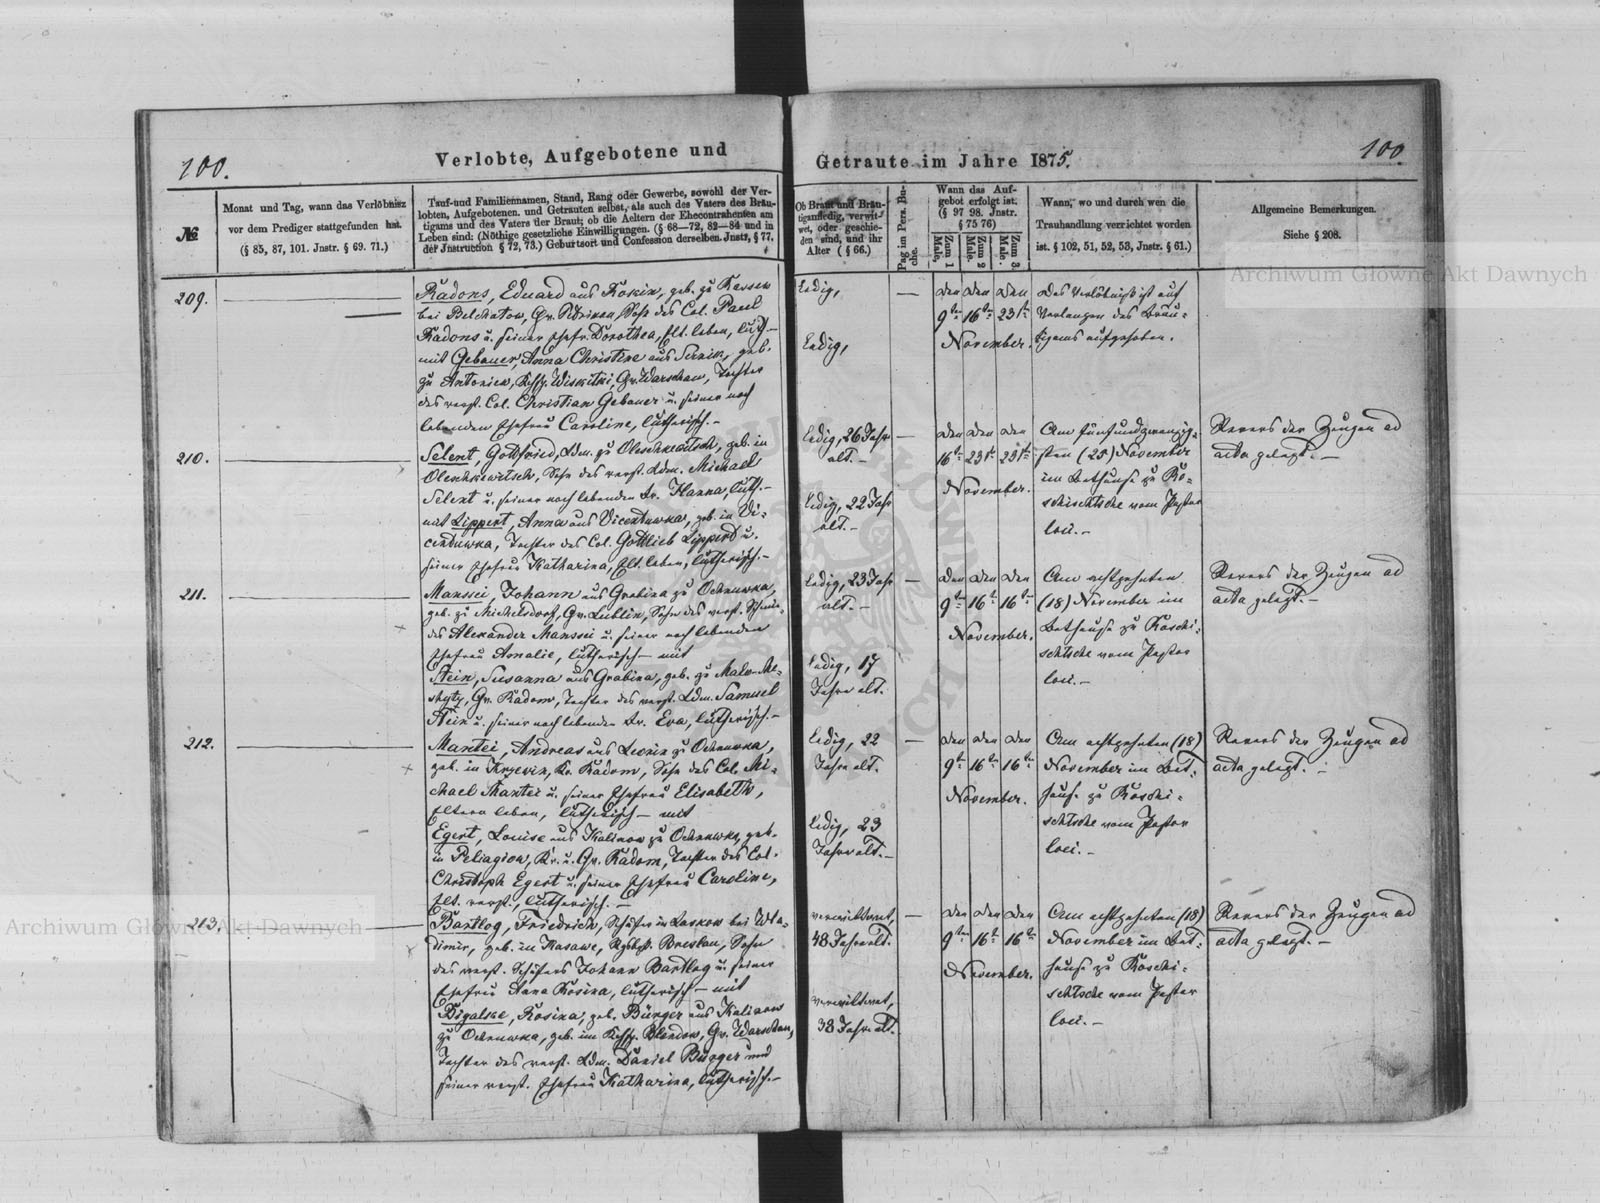 100.
Verlobte, Aufgebotene und
Getraute im Jahre 1875.
100.
№
Monat und Tag, wann das Verlöbnisz
vor dem Prediger stattgefunden hat.
(§ 85, 87, 101. Jnstr. § 69. 71.)
Tauf-und Familiennamen, Stand, Rang oder Gewerbe, sowohl der Ver-
lobten, Aufgebotenen. und Getrauten selbst, als auch des Vaters des Bräu-
tigams und des Vaters der Braut; ob die Aeltern der Ehecontrahenten am
Leben sind: (Nöthige gesetzliche Einwilligungen. (§ 68—72, 82—84 und in
der Jnstruction § 72, 73.) Geburtsort und Confession derselben. Jnstr. § 77.
Ob Braut und Bräu-
tigam ledig, verwit-
wet, oder geschie-
den sind, und ihr
Alter (§ 66.)
Pag im Pers. Bu-
che.
Wann das Auf-
gebot erfolgt ist.
(§ 97 98. Jnstr.
§ 75 76)
Zum 1
Male,
Zum 2
Male.
Zum 3
Male.
Wann, wo und durch wen die
Trauhandlung verrichtet worden
ist. § 102, 51, 52, 53, Jnstr. § 61.)
Allgemeine Bemerkungen.
Siehe § 208.
209.
Radons, Eduard aus Rokin, geb. zu
bei Belchatow, Gv. Petrikau, Sohn des Col. Paul
Radons u. seiner Ehefr. Dorothea, Elt. leben, luth.—
mit Gebauer, Anna Christine aus Sernik, geb.
zu Antoniew, Kchsp. Wiskitki, Gv. Warschau, Tochter
des verst. Col. Christian Gebauer u. seiner noch
lebenden Ehefrau Caroline, lutherisch.—
ledig,
ledig,
—
den den den
9ten 16ten 23ten
November.
Das Verlöbniß ist auf
Verlangen des Bräu-
tigams aufgehoben.
210.
Selent, Gottfried, Ldm. zu Oleschkewitsch, geb. in
Oleschkewitsch, Sohn des verst. Ldm. Michael
Selent u. seiner noch lebenden Fr. Hanna, luth.—
mit Lippert, Anna aus Vicentuwka, geb. in Vi-
centuwka, Tochter des Col. Gottlieb Lippert u.
seiner Ehefrau Katharina, Elt. leben, lutherisch.—
ledig, 26 Jahr
alt.—
ledig, 22 Jahr
alt.—
—
den den den
16te 23te 23te
November.
Am fünfundzwanzig-
sten (25) November
im Bethause zu Ro-
schischtsche vom Pastor
loci.—
Revers der Zeugen ad
acta gelegt.—
211.
Manssei, Johann aus Grabina zu Ochnuwka,
geb. zu Michelsdorf, Gv. Lublin, Sohn des verst. Schmie-
des Alexander Manssei u. seiner noch lebenden
Ehefrau Amalie, lutherisch— mit
Stein, Susanna aus Grabina, geb. zu
Gv. Radom, Tochter des verst. Ldm. Samuel
Stein u. seiner noch lebenden Fr. Eva, lutherisch.—
ledig, 23 Jahr
alt.—
ledig, 17
Jahre alt.
—
den den den
9te 16te 16te
November.
Am achtzehnten
(18) November im
Bethause zu Roschi-
schtsche vom Pastor
loci.—
Revers der Zeugen ad
acta gelegt.—
212.
Mantei, Andreas aus Leonin zu Ochnuwka,
geb. in Kr. Radom, Sohn des Col. Mi-
chael Mantei u. seiner Ehefrau Elisabeth,
Eltern leben, lutherisch— mit
Egert, Louise aus Kalinow zu Ochnuwka, geb.
in Pelagiow, Kr. u. Gv. Radom, Tochter des Col.
Christoph Egert u. seiner Ehefrau Caroline,
Elt. verst., lutherisch.—
ledig, 22
Jahre alt.
ledig, 23
Jahre alt.—
—
den den den
9te 16te 16te
November.
Am achtzehnten (18)
November im Bet-
hause zu Roschi-
schtsche vom Pastor
loci.—
Revers der Zeugen ad
acta gelegt.—
213.
Bartlog, Friedrich, Schäfer in Laskow bei Wla-
dimir, geb. in Kasawe, Rgbz. Breslau, Sohn
des verst. Schäfers Johann Bartlog u. seiner
Ehefrau Anna Rosina, lutherisch— mit
Bigalske, Rosina, geb. Bürger aus Kalinow
zu Ochnuwka, geb. im Kchsp. Blendow, Gv. Warschau,
Tochter des verst. Ldm. Daniel Bürger und
seiner verst. Ehefrau Katharina, lutherisch.—
verwittwet,
48 Jahre alt.
verwittwet,
38 Jahre alt.
—
den den den
9ten 16te 16te
November.
Am achtzehnten (18)
November im Bet-
hause zu Roschi-
schtsche vom Pastor
loci.—
Revers der Zeugen ad
acta gelegt.—
Archiwum Główne Akt Dawnych
Archiwum Główne Akt Dawnych